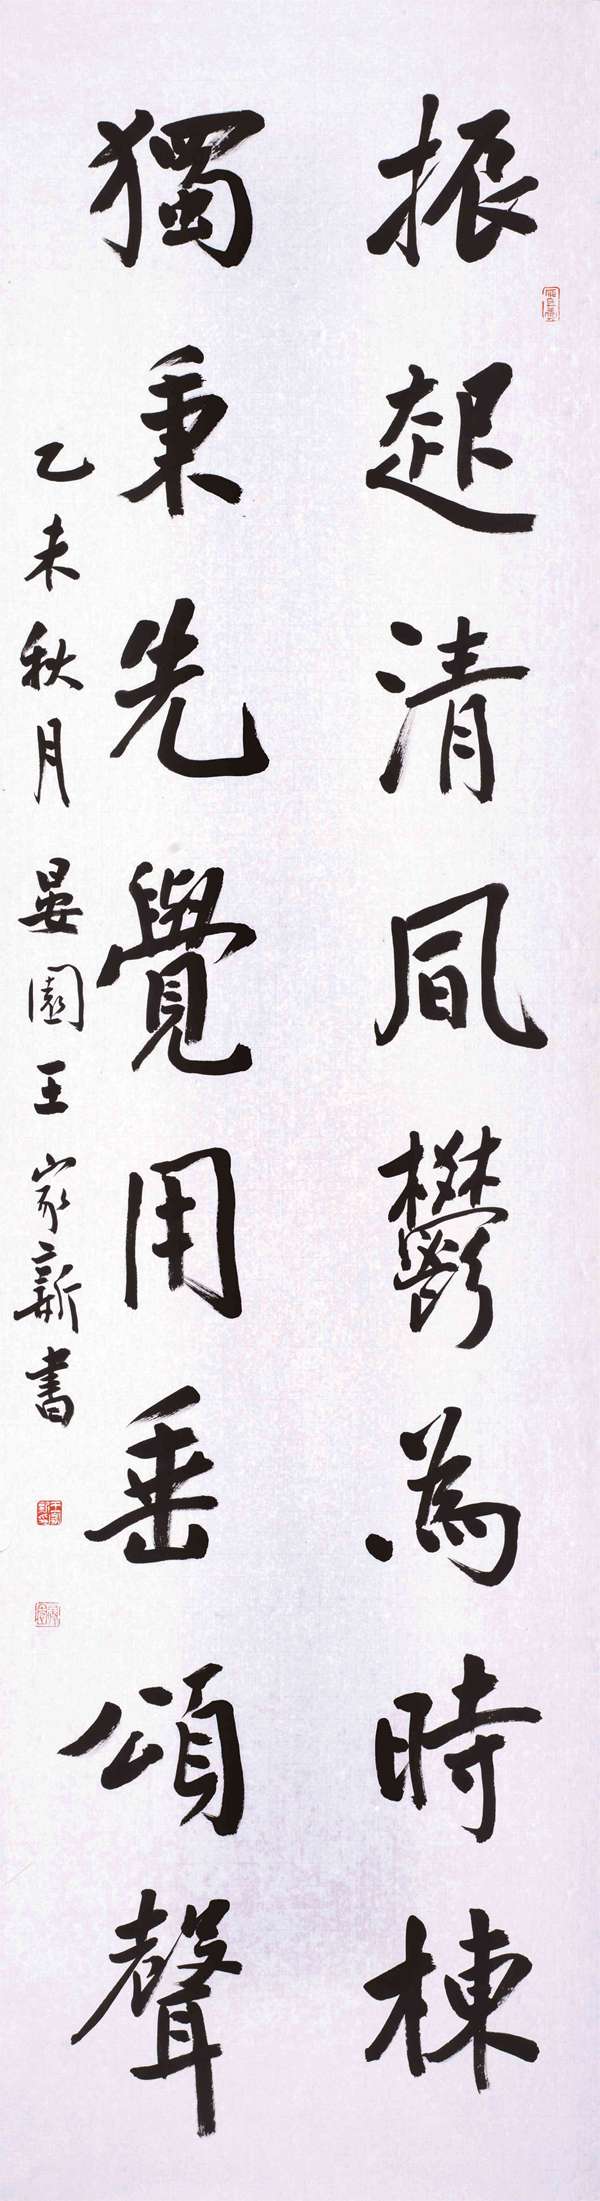 振起清風鬱為時棟
獨秉先覺用垂頌聲
乙未秋月晏園王家新書